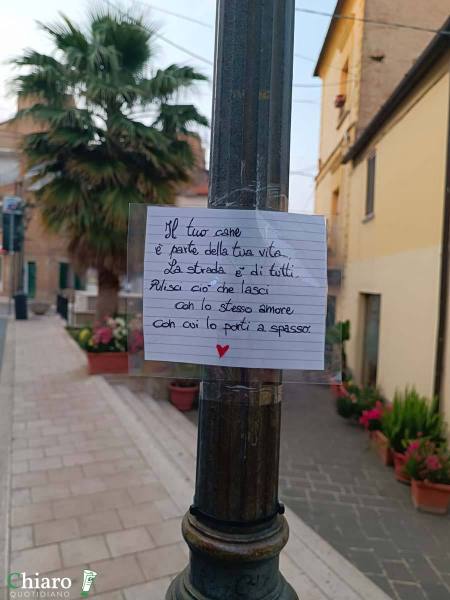 Il tuo cane
è parte della tua vita.
La strada è di tutti.
Pulisci ciò che lasci
con lo stesso amore
con cui lo porti a spasso.
Chiaro
QUOTIDIANO